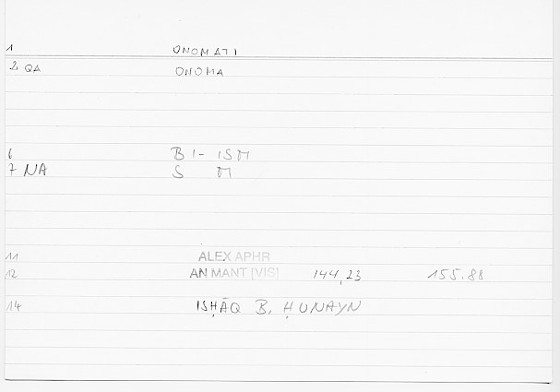 1 ONOMATI
2 QA ONOMA
6 B I- ISM
7 NA S M
11 ALEX APHR
12 AN MANT [VIS] 144,23 155.88
14 ISḤĀQ B. ḤUNAYN